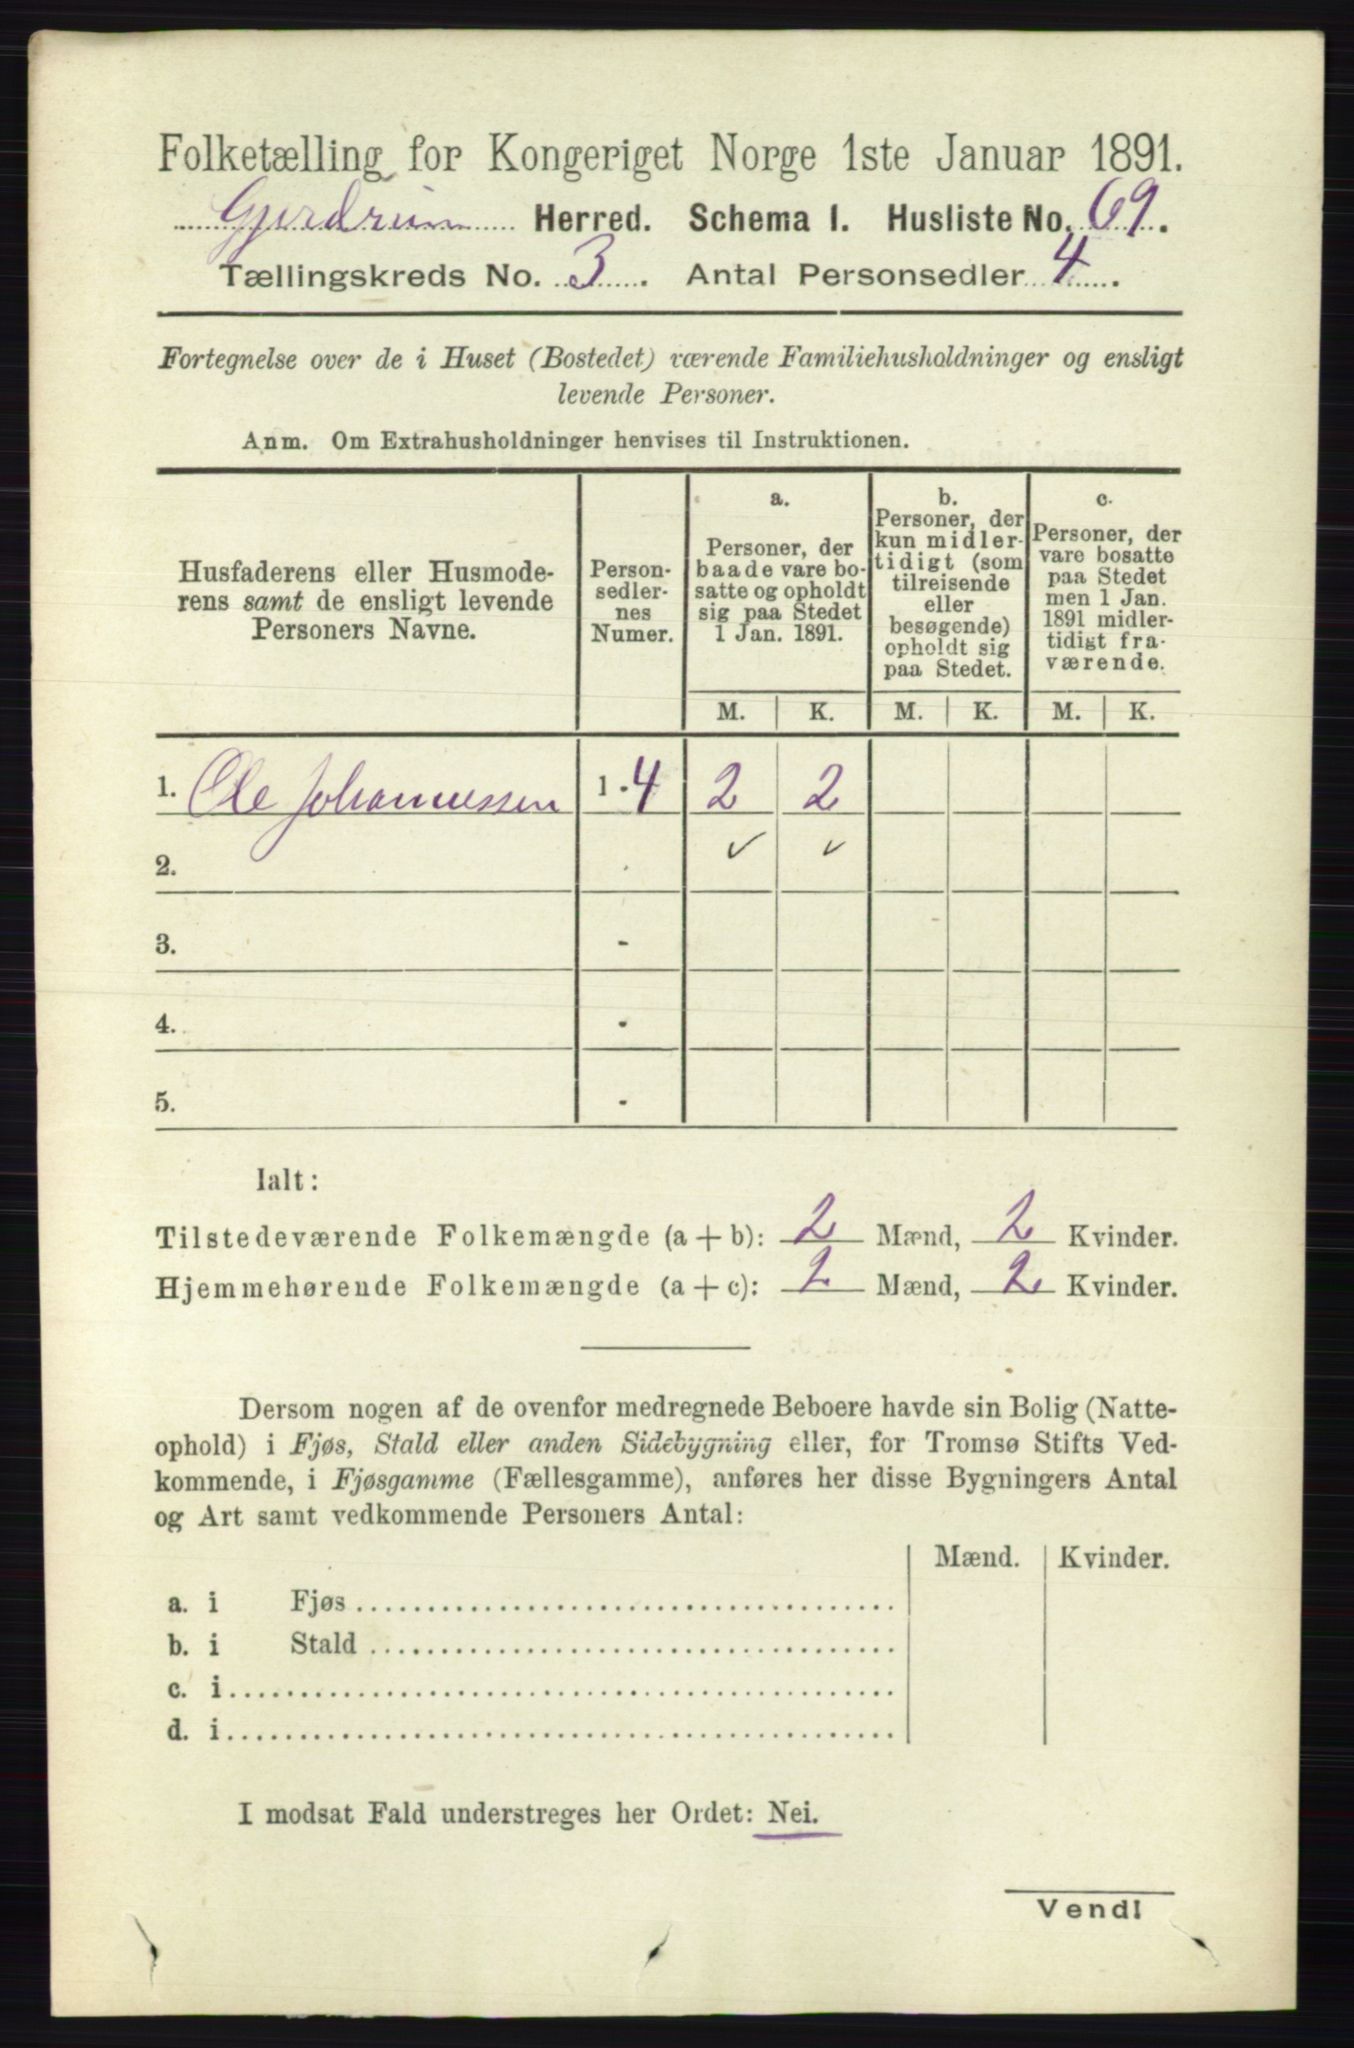 Folketælling for Kongeriget Norge 1ste Januar 1891.
Gjerdrum Herred. Schema I. Husliste No. 69.
Tællingskreds No. 3. Antal Personsedler 4.
Fortegnelse over de i Huset (Bostedet) værende Familiehusholdninger og ensligt
levende Personer.
Anm. Om Extrahusholdninger henvises til Instruktionen.
Husfaderens eller Husmode-
rens samt de ensligt levende
Personers Navne.
Person-
sedler-
nes
Numer.
a.
Personer, der
baade vare bo-
satte og opholdt
sig paa Stedet
1 Jan. 1891.
b.
Personer, der
kun midler-
tidigt (som
tilreisende
eller
besøgende)
opholdt sig
paa Stedet.
c.
Personer, der
vare bosatte
paa Stedet
men 1 Jan.
1891 midler-
tidigt fra-
værende.
M. K. M. K. M. K.
1. Ole Johannessen 1 - 4 2 2
2. - ✓ ✓
3. -
4. -
5. -
Ialt:
Tilstedeværende Folkemængde (a + b): 2 Mænd, 2 Kvinder.
Hjemmehørende Folkemængde (a + c): 2 Mænd, 2 Kvinder.
Dersom nogen af de ovenfor medregnede Beboere havde sin Bolig (Natte-
ophold) i Fjøs, Stald eller anden Sidebygning eller, for Tromsø Stifts Ved-
kommende, i Fjøsgamme (Fællesgamme), anføres her disse Bygningers Antal
og Art samt vedkommende Personers Antal:
Mænd. Kvinder.
a. i Fjøs
b. i Stald
c. i
d. i
I modsat Fald understreges her Ordet: Nei.
Vend!